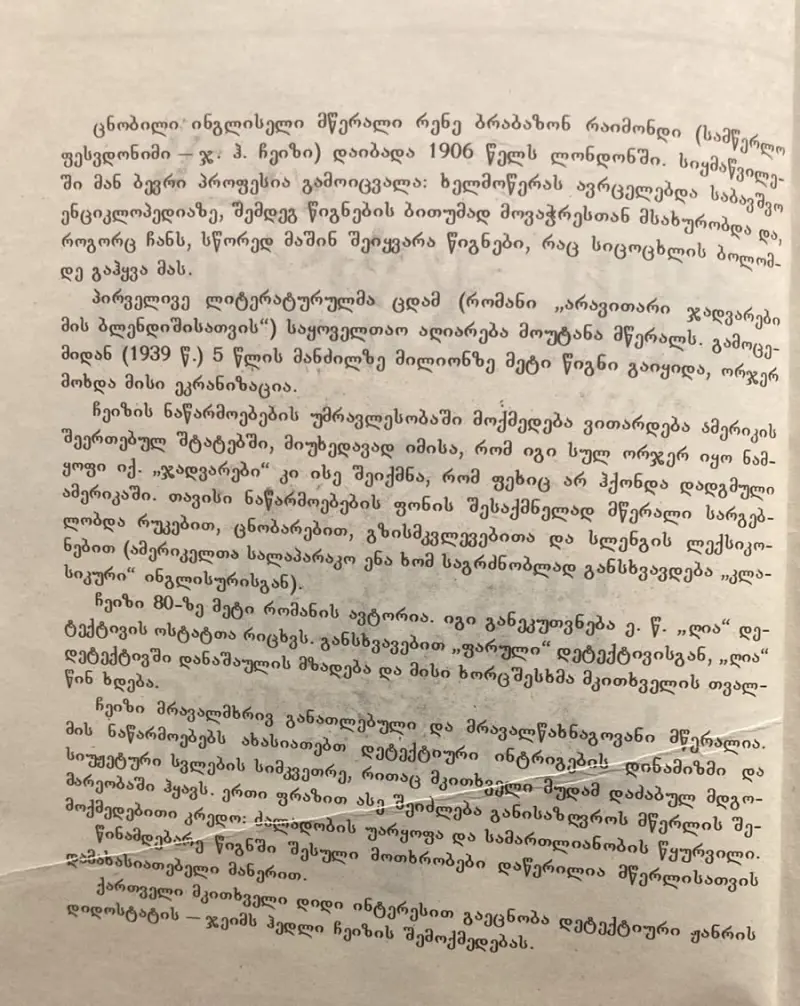 ცნობილი ინგლისელი მწერალი რენე ბრაბაზონ რაიმონდი (სამწერლო
ფესვდონიმი — ჯ. ჰ. ჩეიზი) დაიბადა 1906 წელს ლონდონში. სიყმაწვილე-
ში მან ბევრი პროფესია გამოიცვალა: ხელმოწერას ავრცელებდა საბავშვო
ენციკლოპედიაზე, შემდეგ წიგნების ბითუმად მოვაჭრესთან მსახურობდა და,
როგორც ჩანს, სწორედ მაშინ შეიყვარა წიგნები, რაც სიცოცხლის ბოლომ-
დე გაჰყვა მას.
პირველივე ლიტერატურულმა ცდამ (რომანი „არავითარი ჯადვარები
მის ბლენდიშისათვის“) საყოველთაო აღიარება მოუტანა მწერალს. გამოცე-
მიდან (1939 წ.) 5 წლის მანძილზე მილიონზე მეტი წიგნი გაიყიდა, ორჯერ
მოხდა მისი ეკრანიზაცია.
ჩეიზის ნაწარმოებების უმრავლესობაში მოქმედება ვითარდება ამერიკის
შეერთებულ შტატებში, მიუხედავად იმისა, რომ იგი სულ ორჯერ იყო ნამ-
ყოფი იქ. „ჯადვარები“ კი ისე შეიქმნა, რომ ფეხიც არ ჰქონდა დადგმული
ამერიკაში. თავისი ნაწარმოებების ფონის შესაქმნელად მწერალი სარგებ-
ლობდა რუკებით, ცნობარებით, გზისმკვლევებითა და სლენგის ლექსიკო-
ნებით (ამერიკელთა სალაპარაკო ენა ხომ საგრძნობლად განსხვავდება „კლა-
სიკური“ ინგლისურისგან).
ჩეიზი 80-ზე მეტი რომანის ავტორია. იგი განეკუთვნება ე. წ. „ღია“ დე-
ტექტივის ოსტატთა რიცხვს. განსხვავებით „ფარული“ დეტექტივისგან, „ღია“
დეტექტივში დანაშაულის მზადება და მისი ხორცშესხმა მკითხველის თვალ-
წინ ხდება.
ჩეიზი მრავალმხრივ განათლებული და მრავალწახნაგოვანი მწერალია.
მის ნაწარმოებებს ახასიათებთ დეტექტიური ინტრიგების დინამიზმი და
სიუჟეტური სვლების სიმკვეთრე, რითაც მკითხველი მუდამ დაძაბულ მდგო-
მარეობაში ჰყავს. ერთი ფრაზით ასე შეიძლება განისაზღვროს მწერლის შე-
მოქმედებითი კრედო: ძალადობის უარყოფა და სამართლიანობის წყურვილი.
წინამდებარე წიგნში შესული მოთხრობები დაწერილია მწერლისათვის
დამახასიათებელი მანერით.
ქართველი მკითხველი დიდი ინტერესით გაეცნობა დეტექტიური ჟანრის
დიდოსტატის — ჯეიმს ჰედლი ჩეიზის შემოქმედებას.